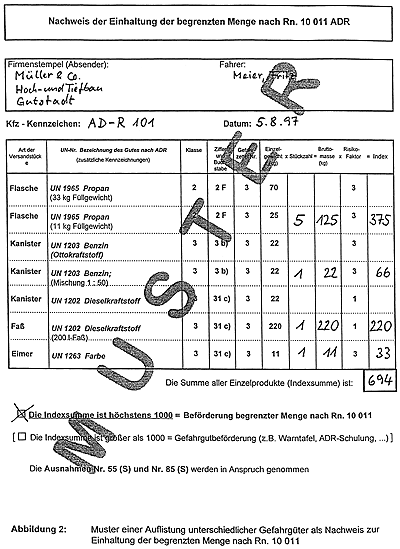 Nachweis der Einhaltung der begrenzten Menge nach Rn. 10 011 ADR
Firmenstempel (Absender): Fahrer:
Müller & Co. Meier, Fritz
Hoch- und Tiefbau
Gutstadt
Kfz - Kennzeichen: AD-R 101 Datum: 5.8.97
Art der Versandstücke UN-Nr. Bezeichnung des Gutes nach ADR (zusätzliche Kennzeichnungen) Klasse Ziffer und Buchstabe Einzelgewicht (kg) x Stückzahl = Bruttomasse (kg) x Risiko-Faktor = Index
Flasche UN 1965 Propan 2 2 F 3 70 3
(33 kg Füllgewicht)
Flasche UN 1965 Propan 2 F 3 25 5 125 3 375
(11 kg Füllgewicht)
Kanister UN 1203 Benzin 3 3 b) 3 22 3
(Ottokraftstoff)
Kanister UN 1203 Benzin; 3 3 b) 3 22 1 22 3 66
(Mischung 1 : 50)
Kanister UN 1202 Dieselkraftstoff 3 31 c) 3 22 1
Faß UN 1202 Dieselkraftstoff 3 31 c) 3 220 1 220 1 220
(200 l-Faß)
Eimer UN 1263 Farbe 3 31 c) 3 11 1 11 3 33
Die Summe aller Einzelprodukte (Indexsumme) ist: 694
Die Indexsumme ist höchstens 1000 = Beförderung begrenzter Menge nach Rn. 10 011
[ Die Indexsumme ist größer als 1000 = Gefahrgutbeförderung (z.B. Warntafel, ADR-Schulung, ...) ]
Die Ausnahmen Nr. 55 (S) und Nr. 85 (S) werden in Anspruch genommen
MUSTER
Abbildung 2: Muster einer Auflistung unterschiedlicher Gefahrgüter als Nachweis zur
Einhaltung der begrenzten Menge nach Rn. 10 011